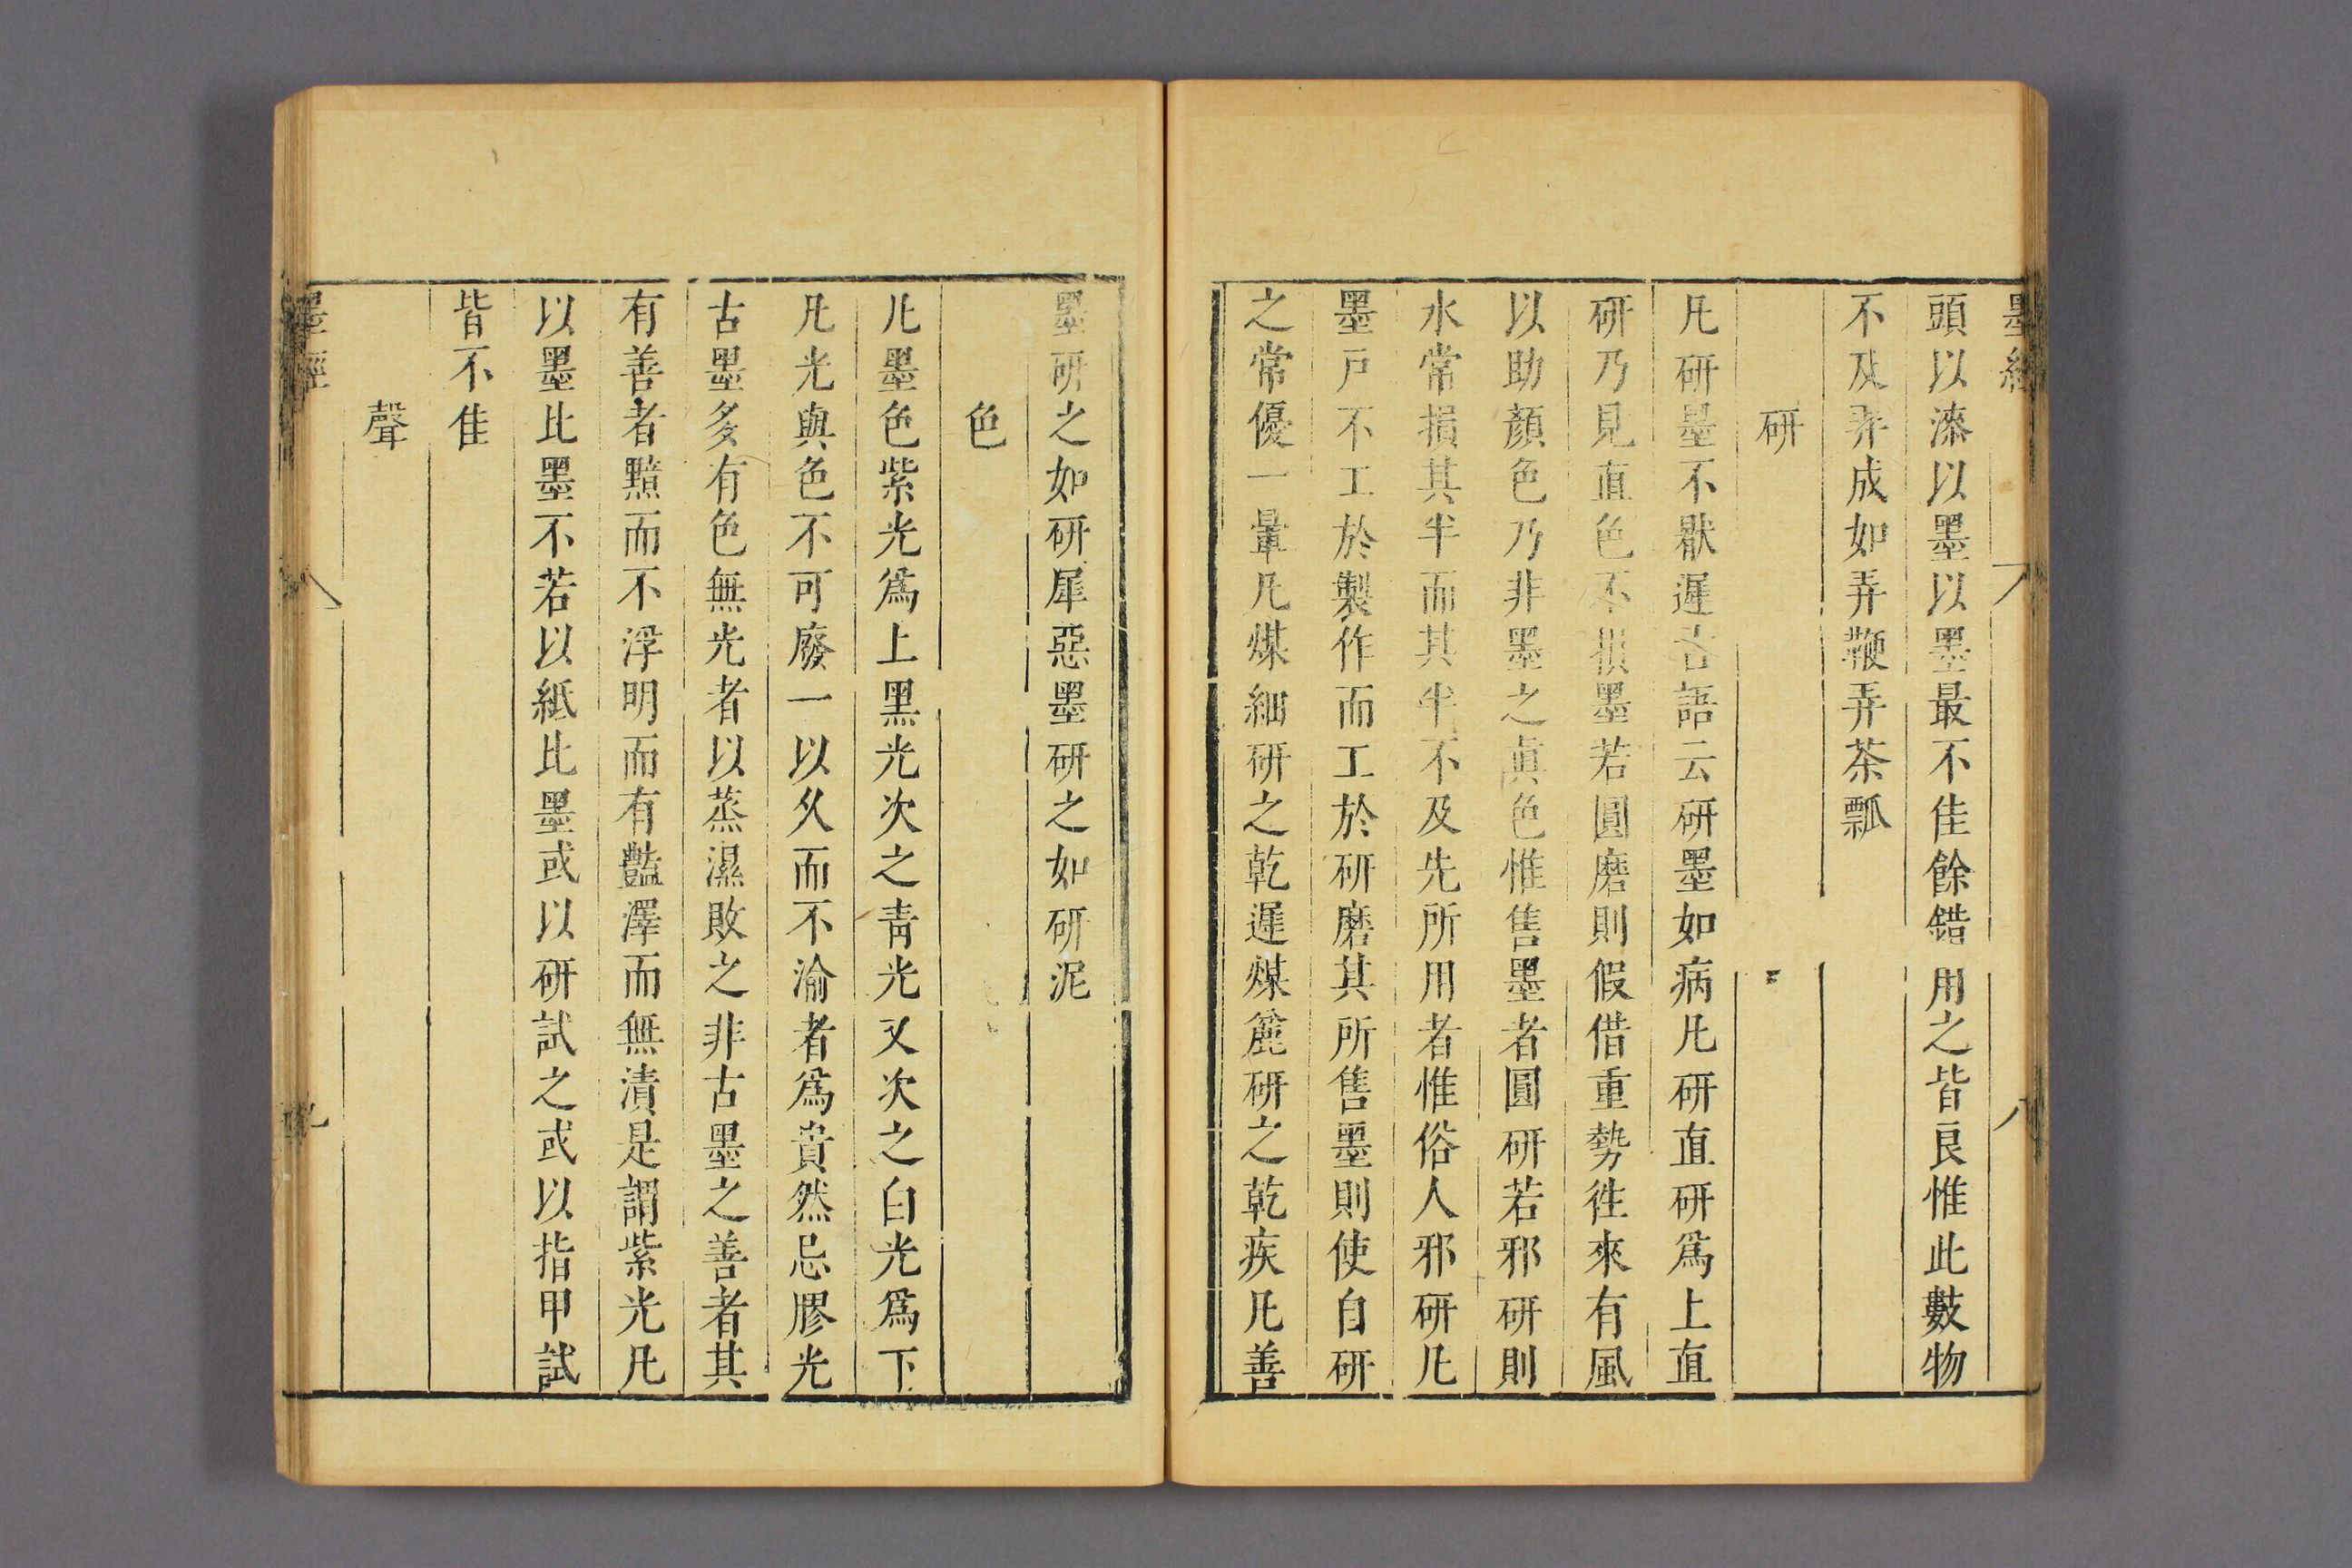 墨經 八
頭以漆以墨以墨最不佳餘錯用之皆良惟此數物
不及弄成如弄鞭弄茶瓢
研
凡研墨不厭遲古語云研墨如病凡研直研爲上直
研乃見直色不損墨若圓磨則假借重勢徃來有風
以助顏色乃非墨之眞色惟售墨者圓研若邪研則
水常損其半而其半不及先所用者惟俗人邪研凡
墨戸不工於製作而工於研磨其所售墨則使自研
之常優一暈凡煤細研之乾遲煤麄研之乾疾凡善
墨研之如研犀惡墨研之如研泥
色
凡墨色紫光爲上黑光次之青光又次之白光爲下
凡光與色不可廢一以久而不渝者爲貴然忌膠光
古墨多有色無光者以蒸濕敗之非古墨之善者其
有善者黯而不浮明而有豔澤而無漬是謂紫光凡
以墨比墨不若以紙比墨或以研試之或以指甲試
皆不佳
聲
墨經 九